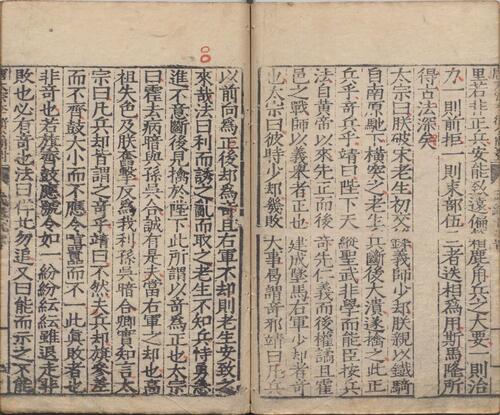 里若非正兵安能致遠偏箱鹿角兵之大要一則治
力一則前拒一則束部伍三者迭相為用斯馬隆所
得古法深矣
太宗曰朕破宋老生初交鋒義師少却朕親以鐵騎
自南原馳下橫突之老生兵斷後大潰遂擒之此正
兵乎奇兵乎靖曰陛下天縱聖武非學而能臣按兵
法自黃帝以來先正而後奇先仁義而後權譎且霍
邑之戰師以義舉者正也建成墜馬右軍少却者奇
也太宗曰彼時少却幾敗大事曷謂奇邪靖曰凡兵
以前向為正後却為奇且右軍不却則老生安致之
來哉法曰利而誘之亂而取之老生不知兵恃勇急
進不意斷後見擒於陛下此所謂以奇為正也太宗
曰霍去病暗與孫吳合誠有是夫當右軍之却也高
祖失色及朕奮擊反為我利孫吳暗合卿實知言太
宗曰凡兵却皆謂之奇乎靖曰不然夫兵却旗參差
而不齊鼓大小而不應令喧囂而不一此真敗者也
非奇也若旗齊鼓應號令如一紛紛紜紜雖退走非
敗也必有奇也法曰佯北勿追又曰能而示之不能